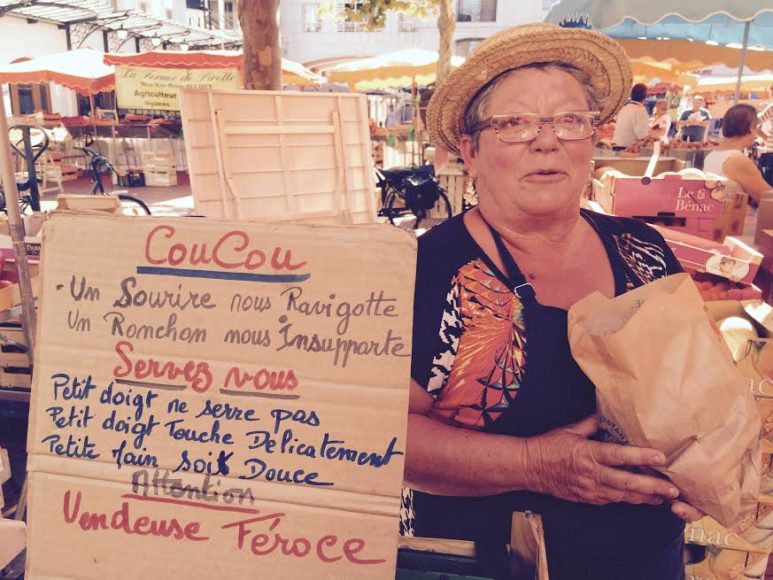 La Ferme de Pirelle
Agriculteur
légumes
Le
Benac
CouCou
Un Sourire nous Ravigotte
Un Ronchon nous Insupporte
Servez vous
Petit doigt ne serre pas
Petit doigt Touche Délicatement
Petite main sois Douce
Attention
Vendeuse Féroce